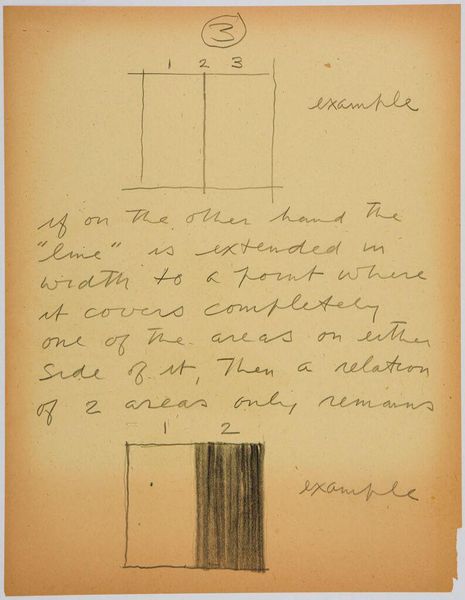 3
1 2 3
example
if on the other hand the
"line" is extended in
width to a point where
it covers completely
one of the areas on either
side of it, Then a relation
of 2 areas only remains
1 2
example